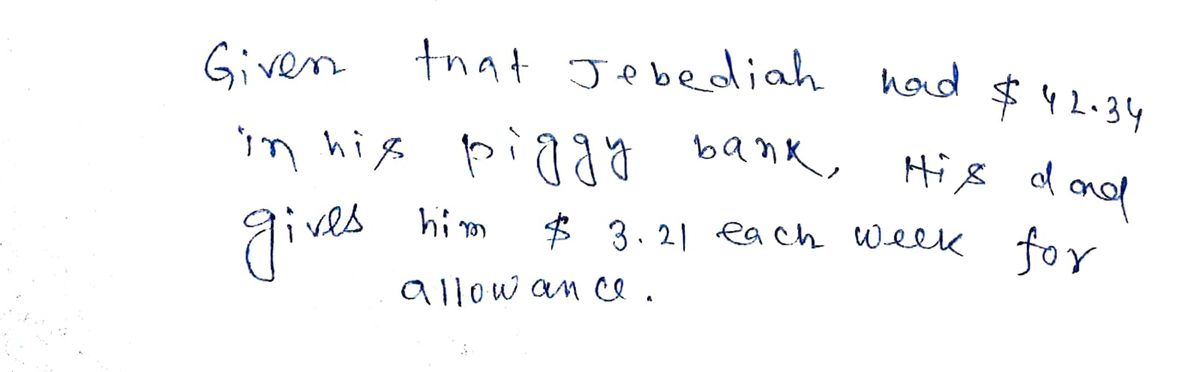 Given that Jebediah had $ 42.34
in his piggy bank, His dad
gives him $ 3.21 each week for
allowance.